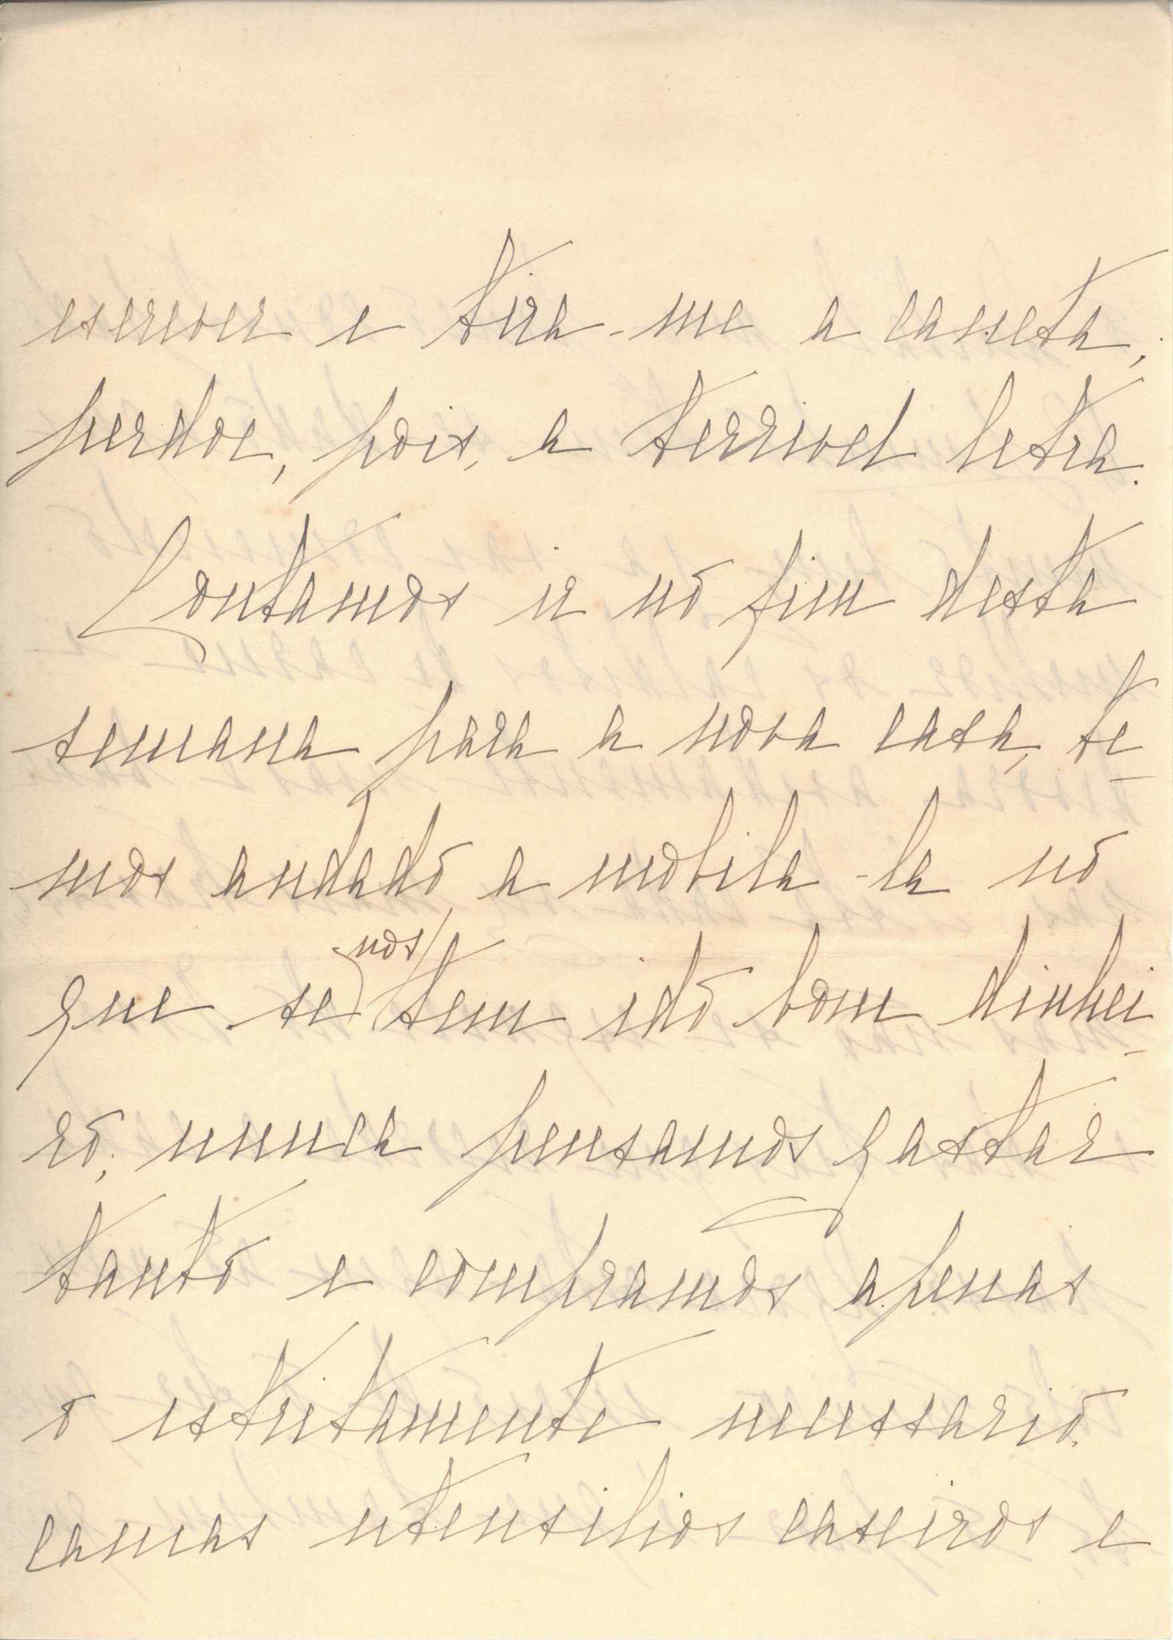 escrever e tira-me a caneta;
perdoe, pois, a terrivel letra.
Contamos ir no fim desta
semana para a nova casa, te-
mos andado a mobila-la no
que se nos tem ido bom dinhei-
ro; nunca pensamos gastar
tanto e compramos apenas
o estritamente necessario.
camas utensilios caseiros e